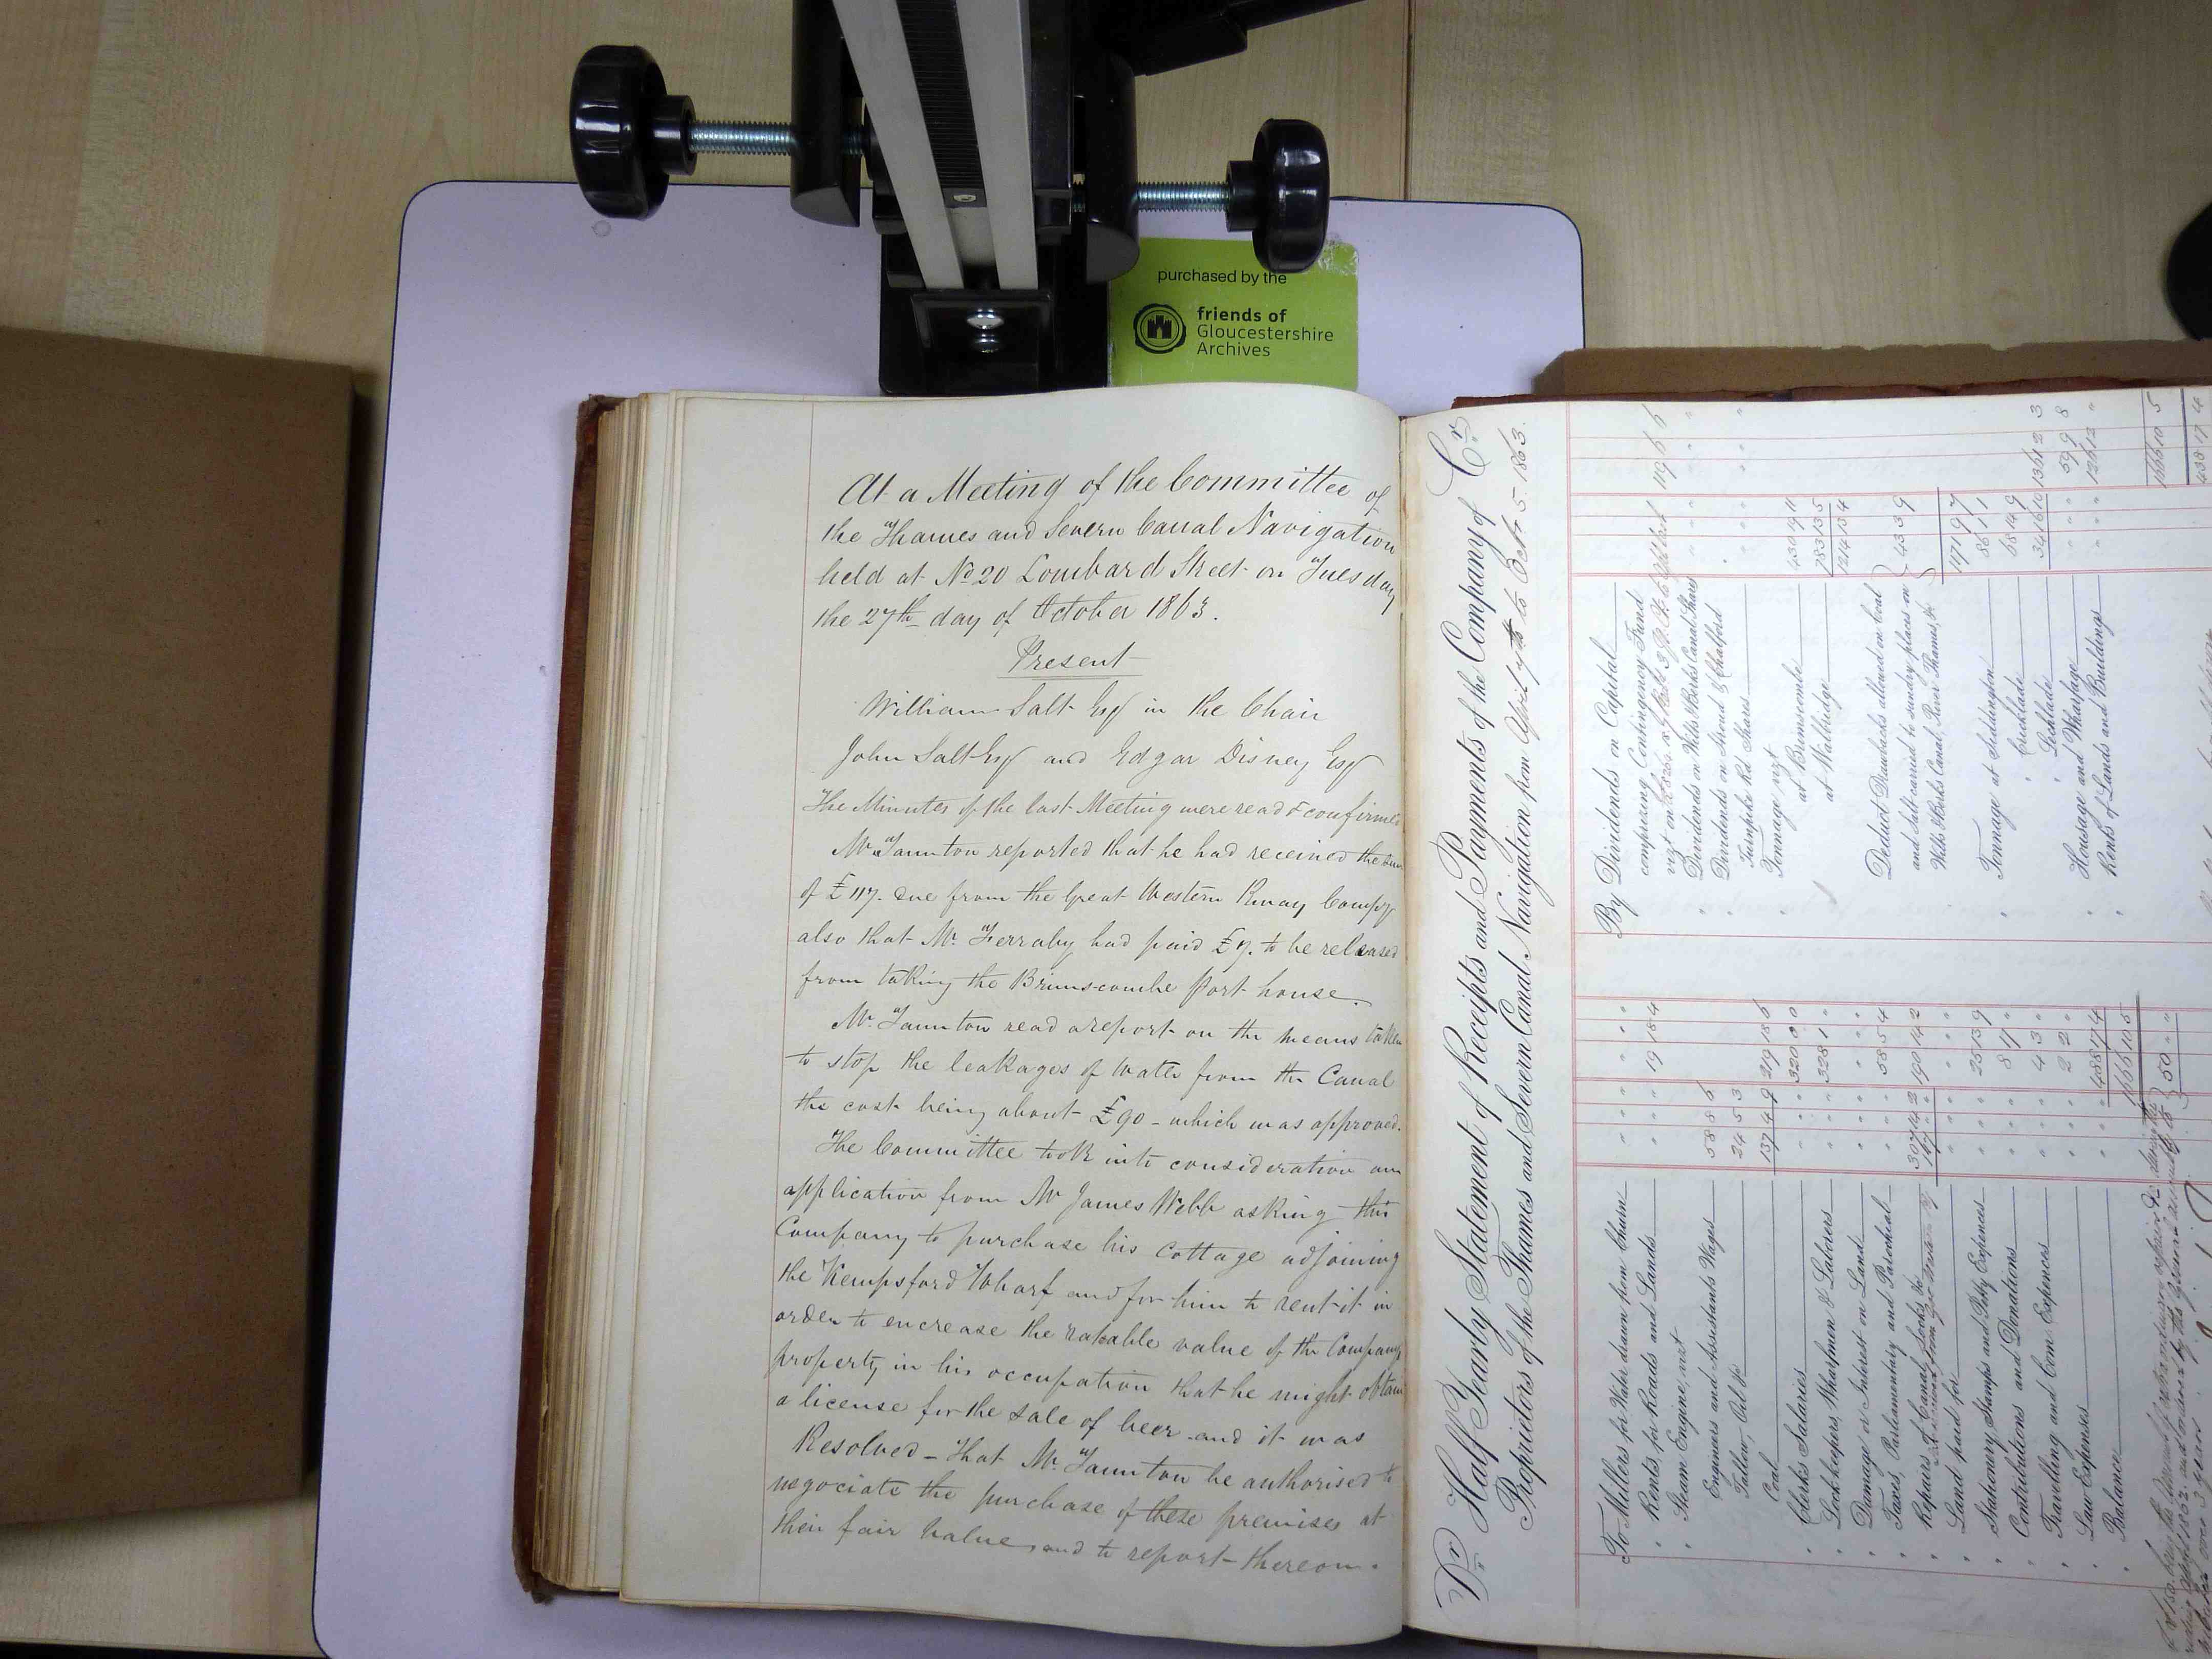 purchased by the
friends of
Gloucestershire
Archives
At a Meeting of the Committee of
the Thames and Severn Canal Navigation
held at No 20 Lombard Street on Tuesday
the 27th day of October 1863.
Present
William Salt Esq in the Chair
John Salt Esq and Edgar Disney Esq
The Minutes of the last Meeting were read & confirmed
Mr Taunton reported that he had received the sum
of £117. due from the Great Western Rway Compy
also that Mr. Ferraby had paid £7. to be released
from taking the Brimscombe Port house.
Mr. Taunton read a report on the means taken
to stop the leakages of Water from the Canal
the cost being about £90 - which was approved.
The Committee took into consideration an
application from Mr James Webb asking this
Company to purchase his Cottage adjoining
the Kempsford Wharf and for him to rent it in
order to encrease the ratable value of the Companys
property in his occupation that he might obtain
a license for the sale of beer and it was
Resolved - That Mr. Taunton be authorised to
negociate the purchase of these premises at
their fair value, and to report thereon.
Dr Half Yearly Statement of Receipts and Payments of the Company of Cr
Proprietors of the Thames and Severn Canal Navigation from April 7th to Octr 5. 1863.
To Millers for Water drawn from Churn " " " " " "
" Rents, for Roads and Lands " " " 19 18 4
" Steam Engine, vizt
Engineers and Assistants Wages 58 8 6
Tallow, Oil &c 24 5 3
Coal 137 4 9 219 18 6
" Clerks Salaries " " " 320 0 0
" Lockkeepers, Wharfmen & Laborers " " " 328 1 "
" Damage or Interest on Land " " " " " "
" Taxes, Parliamentary and Parochial " " " 58 5 4
" Repairs of Canal, Locks, &c 307 14 2 190 14 2
" Land paid for " " " " " "
" Stationery, Stamps and Petty Expences " " " 25 13 9
" Contributions and Donations " " " 8 17 "
" Travelling and Com. Expences " " " 4 3 "
" Law Expenses " " " 2 2 "
" Balance " " " 488 17 4
1666 10 5
By Dividends on Capital
comprizing Contingency Fund
" Dividends on Wilts & Berks Canal Shares " " "
Dividends on Stroud & Chalford
Turnpike Rd Shares " " "
" Tonnage vizt
at Brimscombe 430 19 11
at Wallbridge 783 13 5
1214 13 4
Deduct Drawbacks allowed on Coal
and Salt carried to sundry places on
Wilts & Berks Canal, River Thames, &c 43 3 9
1171 9 7
" Tonnage at Siddington 86 1 1
" " Cricklade 68 14 9
" " Lechlade 34 16 10 1361 2 3
" Housage and Wharfage " " " 59 9 8
" Rents of Lands and Buildings " " " 126 12 "
1666 10 5
488 17 4